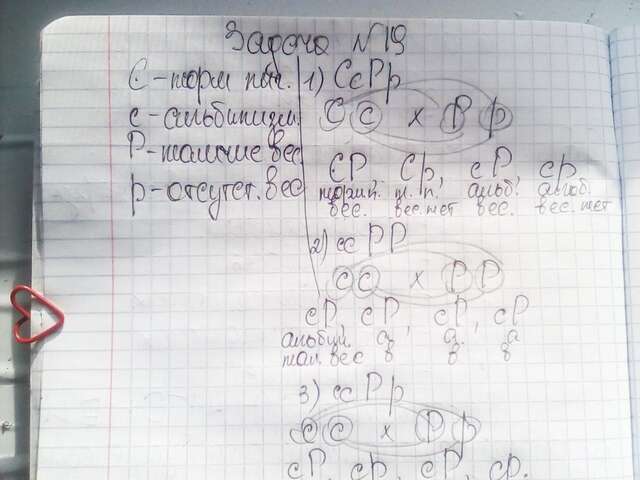 Задача №19
С - норм пиг.
с - альбинизм
Р - наличие вес
р - отсутст. вес
1) СсРр
С с х Р р
СР, Ср, сР, ср
норм п. п. п. альб. альб.
вес. вес. нет вес. вес. нет
2) ссРР
с с х Р Р
сР, сР, сР, сР
альбин. а а. а
нал. вес в в в
3) ссРр
с с х Р р
сР, ср, сР, ср.